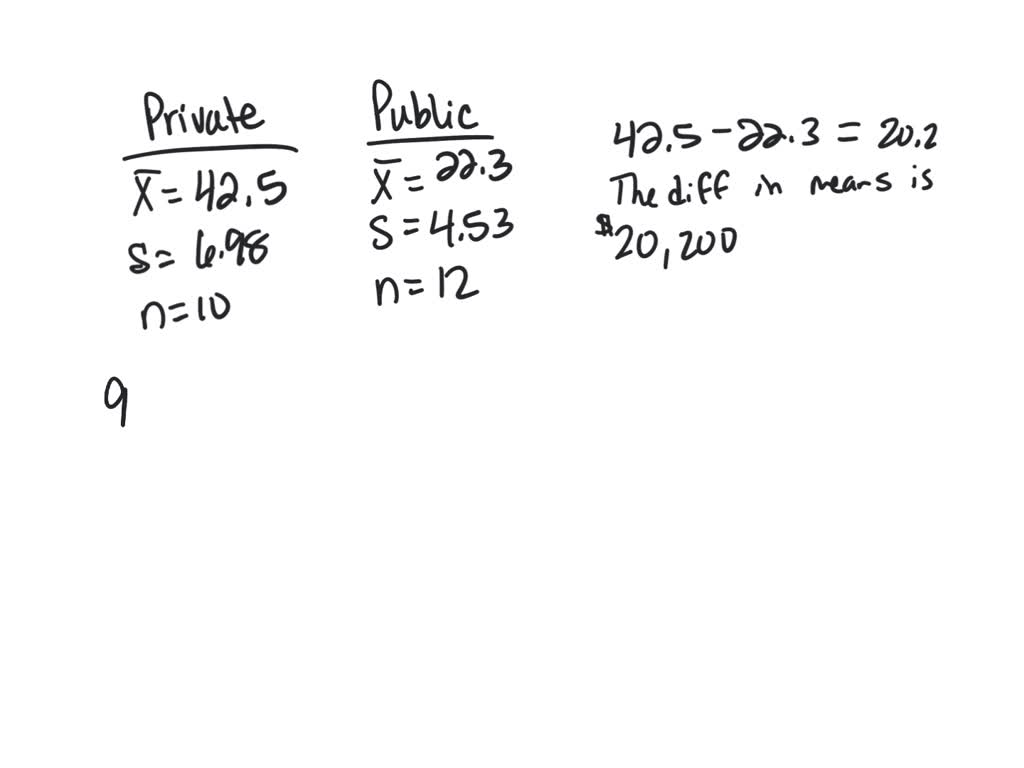 Private
x̄ = 42.5
s = 6.98
n = 10
Public
x̄ = 22.3
s = 4.53
n = 12
42.5 - 22.3 = 20.2
The diff in means is
$20,200
9